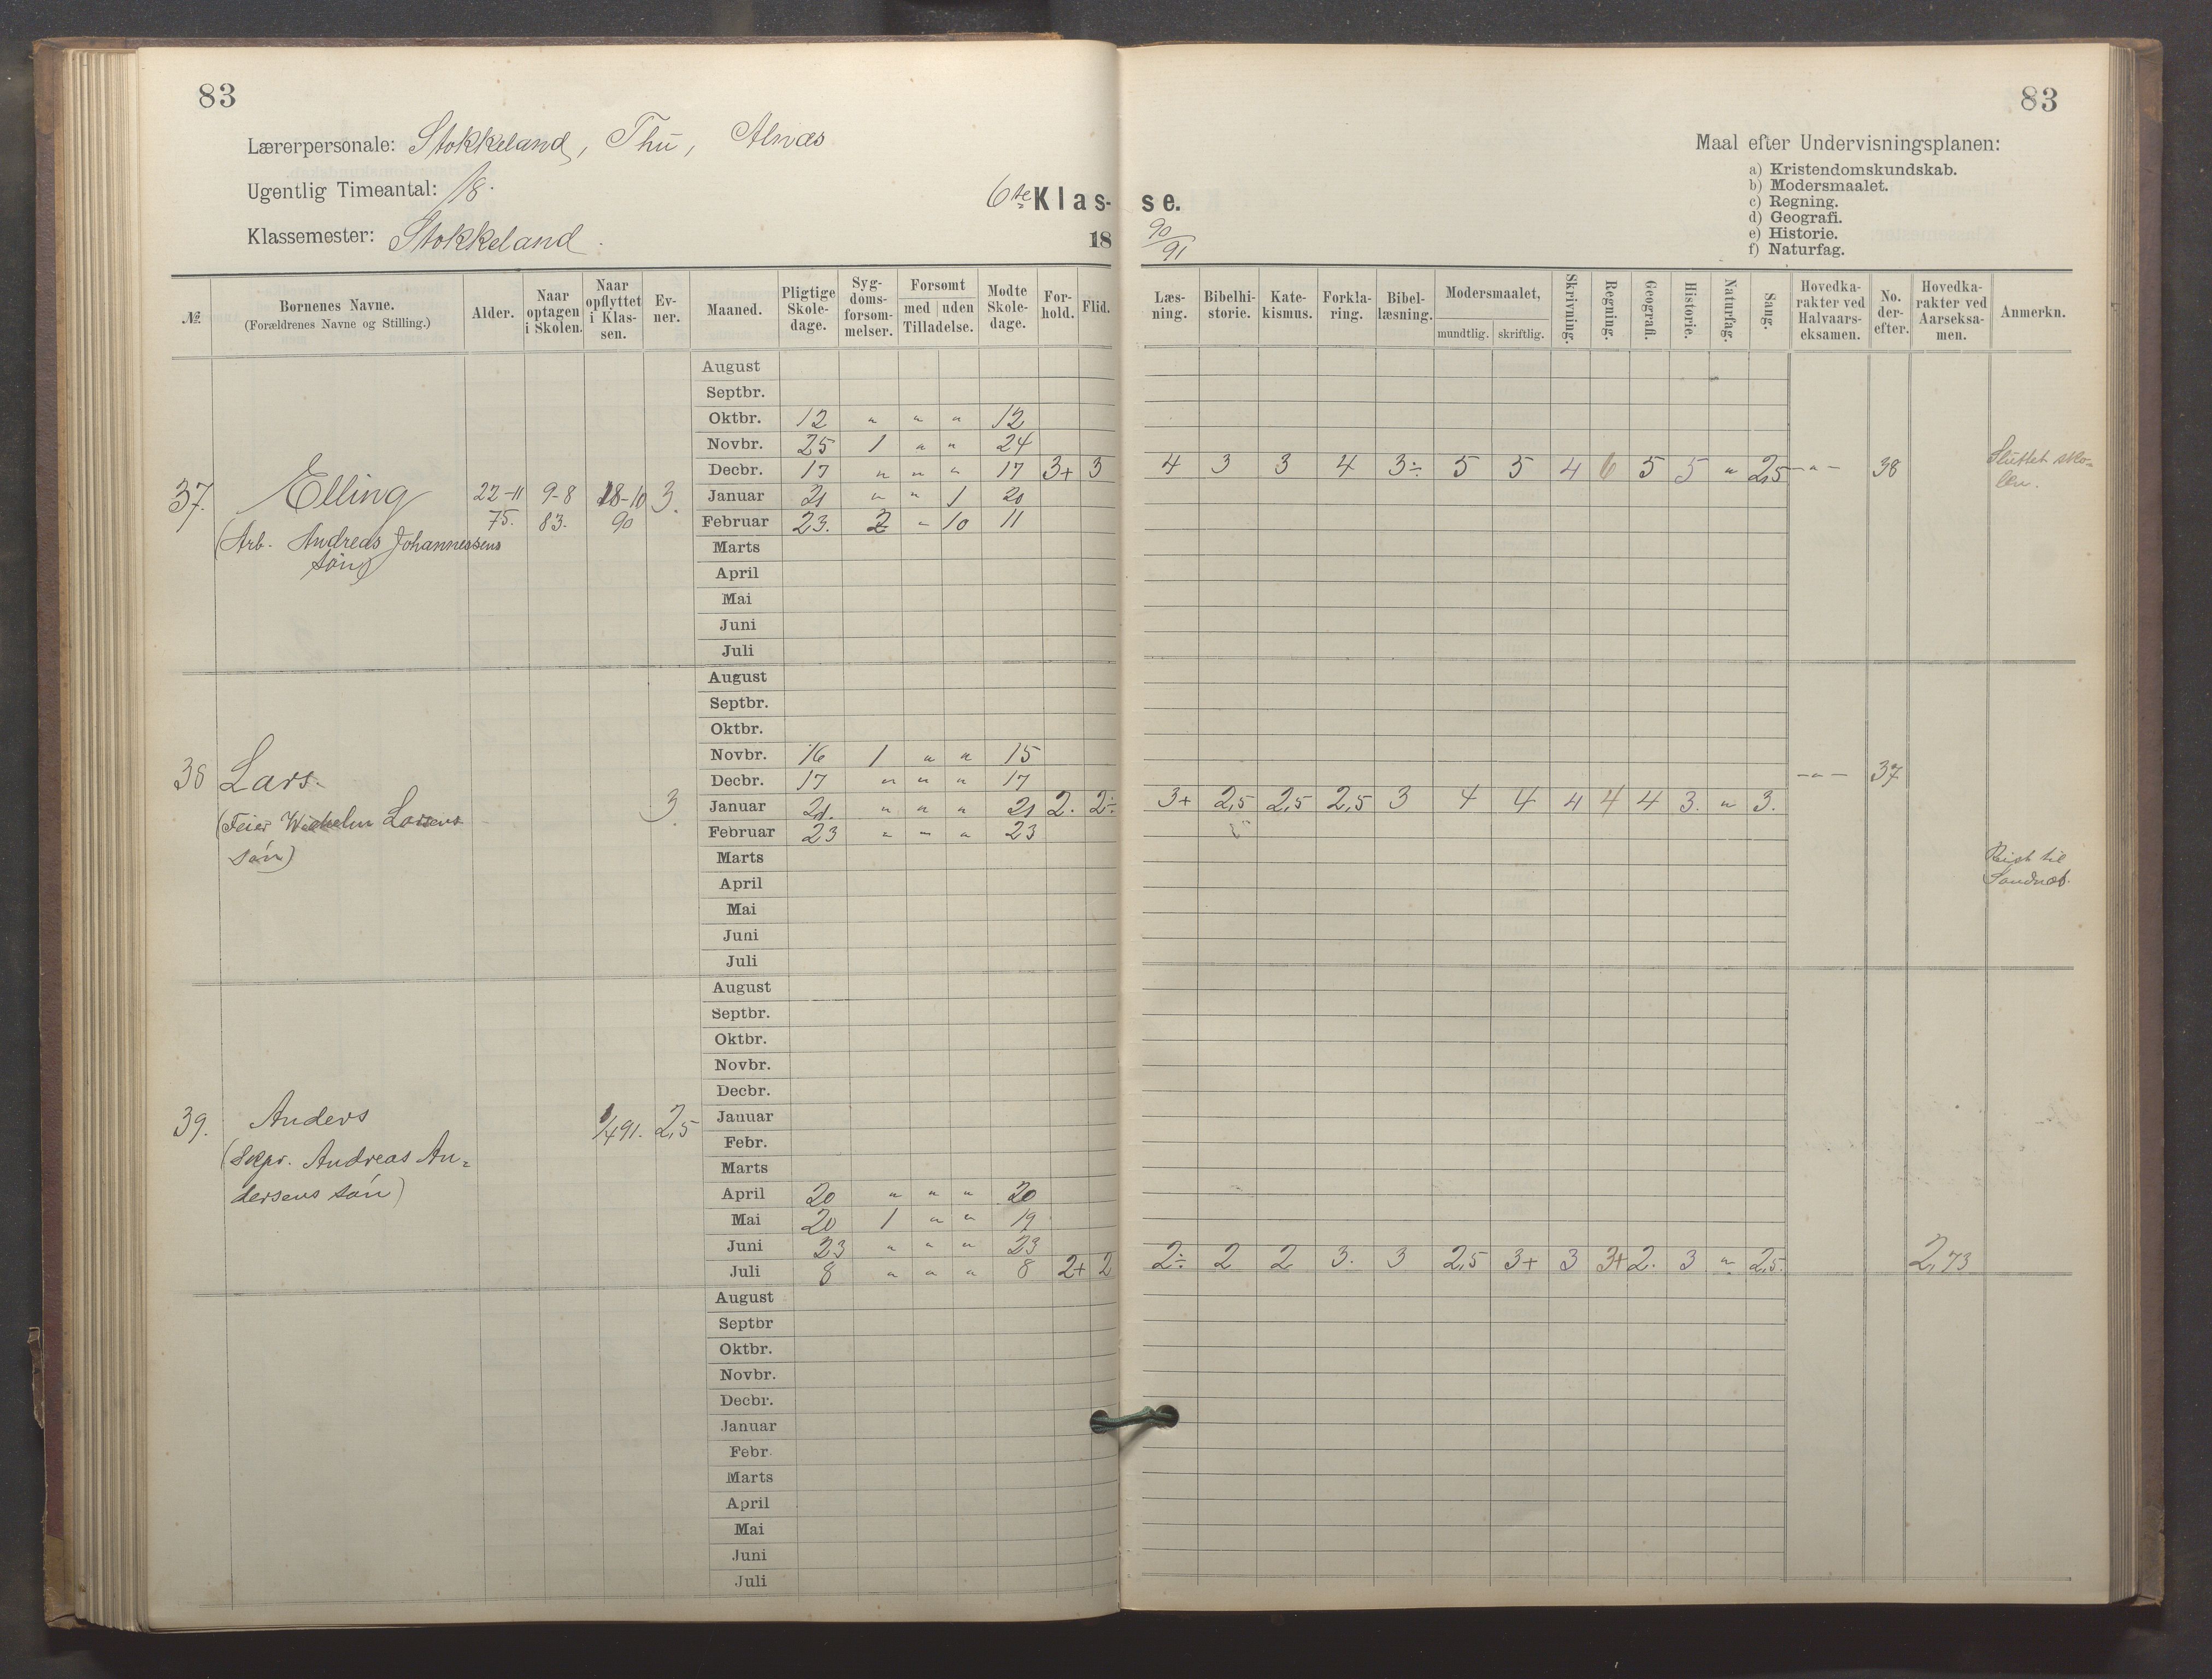 83
83
Lærerpersonale: Stokkeland, Thu, Alnæs
Ugentlig Timeantal: 18.
Klassemester: Stokkeland.
6te Klasse.
18 90/91
Maal efter Undervisningsplanen:
a) Kristendomskundskab.
b) Modersmaalet.
c) Regning.
d) Geografi.
e) Historie.
f) Naturfag.
№ Børnenes Navne. (Forældrenes Navne og Stilling.) Alder. Naar optagen i Skolen. Naar opflyttet i Klassen. Evner. Maaned. Pligtige Skoledage. Sygdomsforsømmelser. Forsømt med uden Tilladelse. Mødte Skoledage. Forhold. Flid. Læsning. Bibelhistorie. Katekismus. Forklaring. Bibellæsning. Modersmaalet, mundtlig. skriftlig. Skrivning. Regning. Geografi. Historie. Naturfag. Sang. Hovedkarakter ved Halvaarseksamen. No. derefter. Hovedkarakter ved Aarseksamen. Anmerkn.
37. Elling 22-11 75. 9-8 83. 18-10 90 3.
(Arb. Andreas Johannessens søn)
August
Septbr.
Oktbr. 12 " " " 12
Novbr. 25 1 " " 24
Decbr. 17 " " " 17 3+ 3 4 3 3 4 3÷ 5 5 4 6 5 5 " 2,5 -"- 38 Sluttet skolen.
Januar 21 " " 1 20
Februar 23. 2 - 10 11
Marts
April
Mai
Juni
Juli
38 Lars. 3.
(Feier Wilhelm Larsens
søn)
August
Septbr.
Oktbr.
Novbr. 16 1 " " 15
Decbr. 17 " " " 17 -"- 37
Januar 21. " " " 21 2. 2÷ 3+ 2,5 2,5 2,5 3 4 4 4 4 4 3. " 3.
Februar 23 " - " 23
Marts Reist til
April Sandnæs.
Mai
Juni
Juli
39. Anders 1/4 91. 2,5
(Andreas An-
dersens søn)
August
Septbr.
Oktbr.
Novbr.
Decbr.
Januar
Febr.
Marts
April 20 " " " 20
Mai 20 1 " " 19
Juni 23 " " " 23
Juli 8 " " " 8 2+ 2 2÷ 2 2 3. 3 2,5 3+ 3 3+ 2. 3 " 2,5. 2,73
August
Septbr
Oktbr.
Novbr.
Decbr.
Januar
Febr.
Marts
April
Mai
Juni
Juli